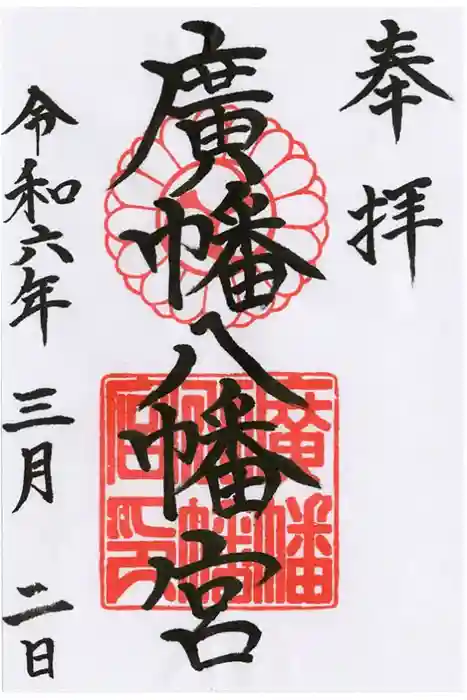 奉拝
廣幡八幡宮
廣幡八幡宮印
令和六年三月二日